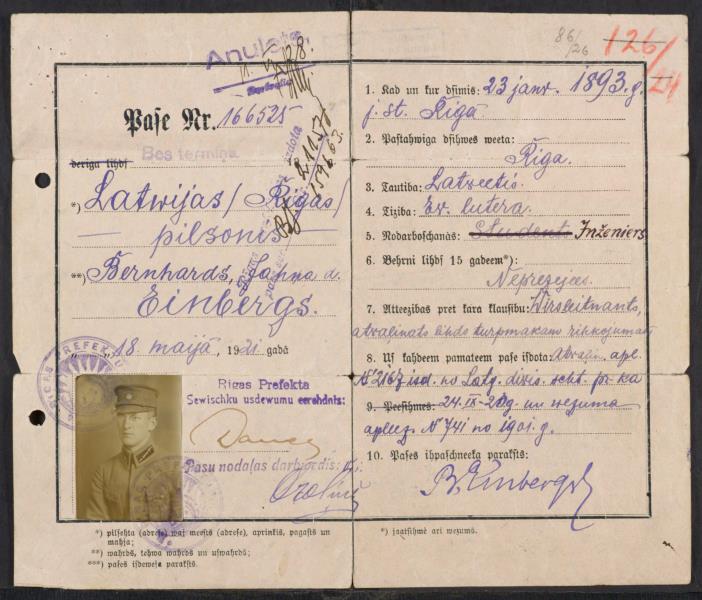 Anulets
86/26
126/24
Pase Nr. 166525
deriga lihds Bes termiņa
*) Latwijas/Rigas/
pilsonis
**) Bernhards, Jahņa d.
Einbergs.
18 maijā, 1921 gadā
Rigas Prefekta
Sewischku usdewumu eerehdnis:
Pasu nodaļas darbwedis:
Ozoliņš
RIGAS PREFEKTURA
*) pilsehta (adrese) waj meests (adrese), apriņkis, pagasts un
muhja;
**) wahrds, tehwa wahrds un uswahrds;
***) pases isdeweja paraksts.
1. Kad un kur dsimis: 23 janv. 1893. g.
j. st. Rigā
2. Pastahwiga dsihwes weeta:
Riga.
3. Tautiba: Latweetis.
4. Tiziba: Ev. lutera.
5. Nodarboschanās: Students Inženiers
6. Behrni lihds 15 gadeem*):
Neprezejees.
7. Atteezibas pret kara klausibu: Virsleitnants,
atvaļinats lihds turpmakam rihkojumam
8. Us kahdeem pamateem pase isdota: Atvaļin. apl.
№ 2167 isd. no Latg. divis.
9. Peesihmes: 24. IX-20 g. un wezuma
apleez. № 741 no 1901. g.
10. Pases ihpaschneeka paraksts:
B. Einbergs
*) jaatsihmē ari wezums.